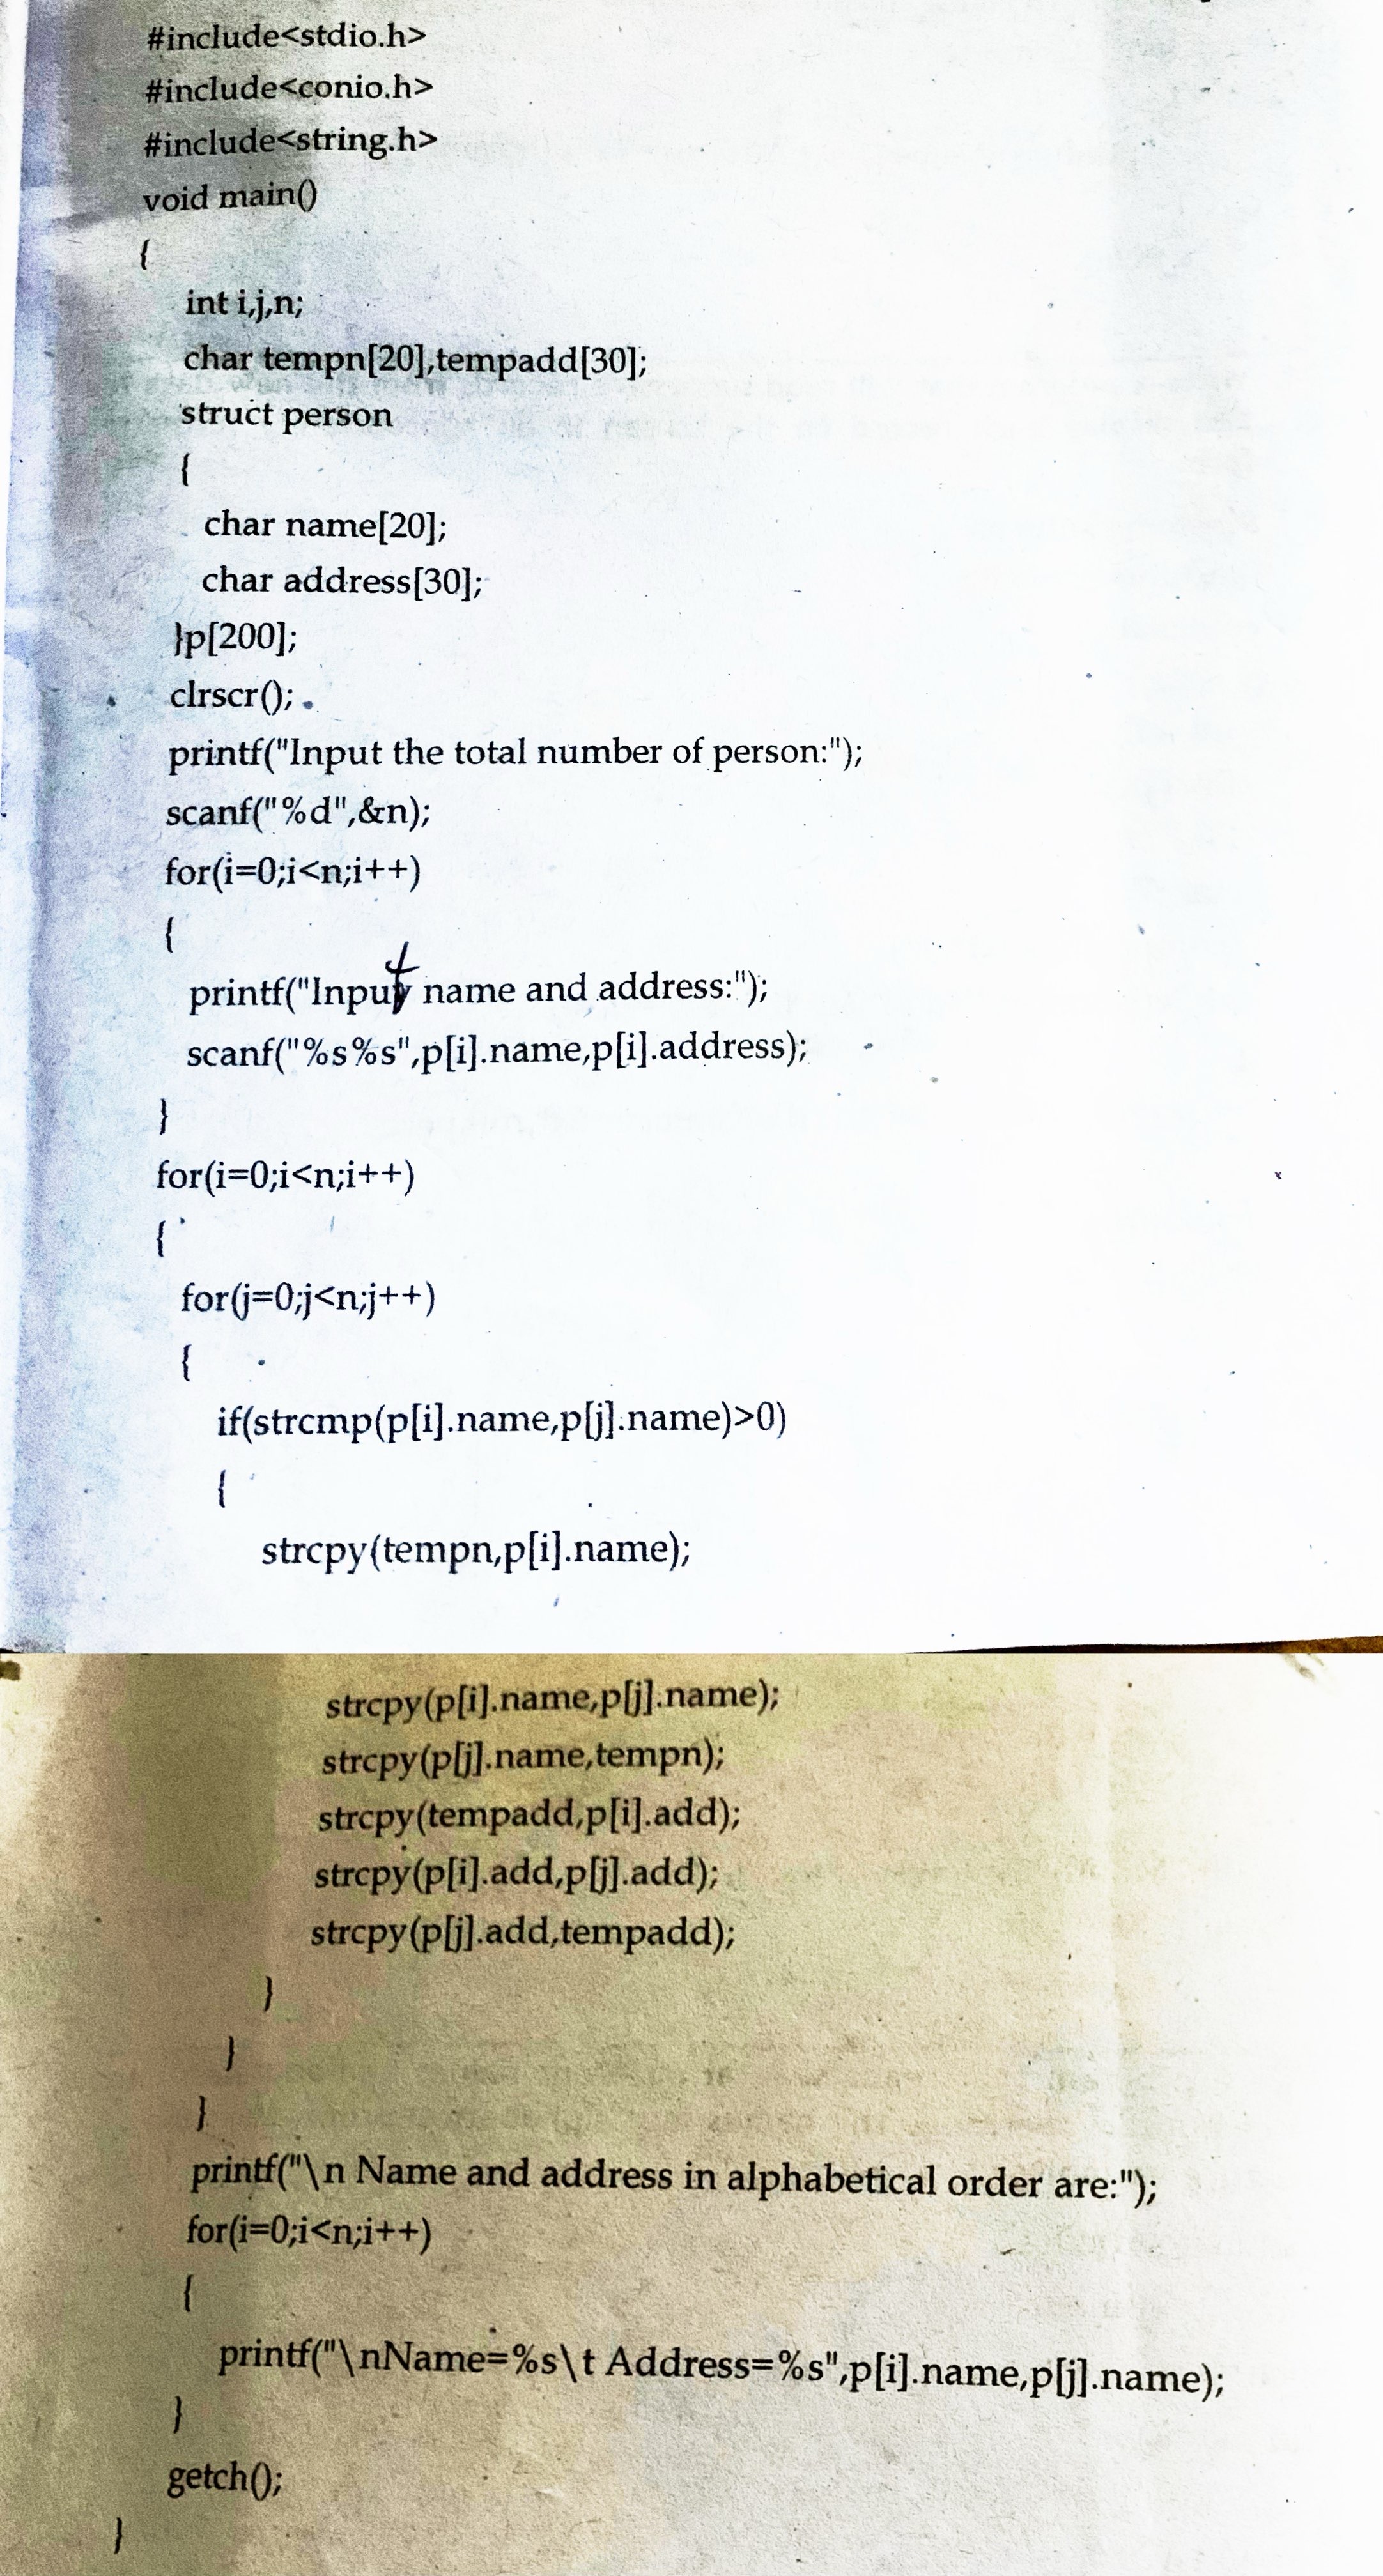 #include<stdio.h>
#include<conio.h>
#include<string.h>
void main()
{
int i,j,n;
char tempn[20],tempadd[30];
struct person
{
char name[20];
char address[30];
}p[200];
clrscr();
printf("Input the total number of person:");
scanf("%d",&n);
for(i=0;i<n;i++)
{
printf("Input name and address:");
scanf("%s%s",p[i].name,p[i].address);
}
for(i=0;i<n;i++)
{
for(j=0;j<n;j++)
{
if(strcmp(p[i].name,p[j].name)>0)
{
strcpy(tempn,p[i].name);
strcpy(p[i].name,p[j].name);
strcpy(p[j].name,tempn);
strcpy(tempadd,p[i].add);
strcpy(p[i].add,p[j].add);
strcpy(p[j].add,tempadd);
}
}
}
printf("\n Name and address in alphabetical order are:");
for(i=0;i<n;i++)
{
printf("\nName=%s\t Address=%s",p[i].name,p[j].name);
}
getch();
}